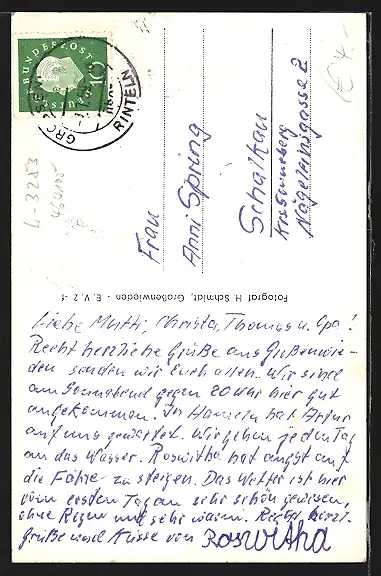 DEUTSCHE
BUNDESPOST
10
GROSSENWIEDEN
RINTELN
1€ 4,-
L-3253
Frau
Anni Spring
Schalkau
Krs. Sonneberg
Nägeleinsgasse 2
Fotograf H. Schmidt, Großenwieden - E. V. 2 4
Liebe Mutti, Christa, Thomas u. Opa!
Recht herzliche Grüße aus Großenwie-
den senden wir Euch allen. Wir sind
am Sonnabend gegen 20 Uhr hier gut
angekommen. In Hameln hat Artur
auf uns gewartet. Wir gehen jeden Tag
an das Wasser. Roswitha hat angst auf
die Fähre zu steigen. Das Wetter ist hier
vom ersten Tag an sehr schön gewesen,
ohne Regen und sehr warm. Recht herzl.
Grüße und Küsse von Roswitha